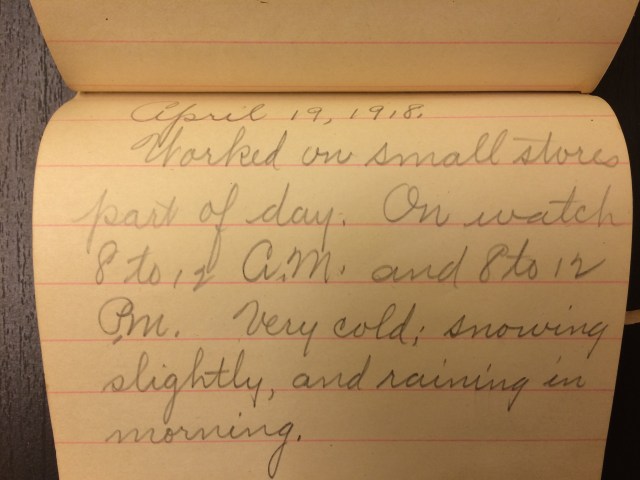 April 19, 1918.
Worked on small stores
part of day. On watch
8 to 12 A.M. and 8 to 12
P.M. Very cold; snowing
slightly, and raining in
morning.